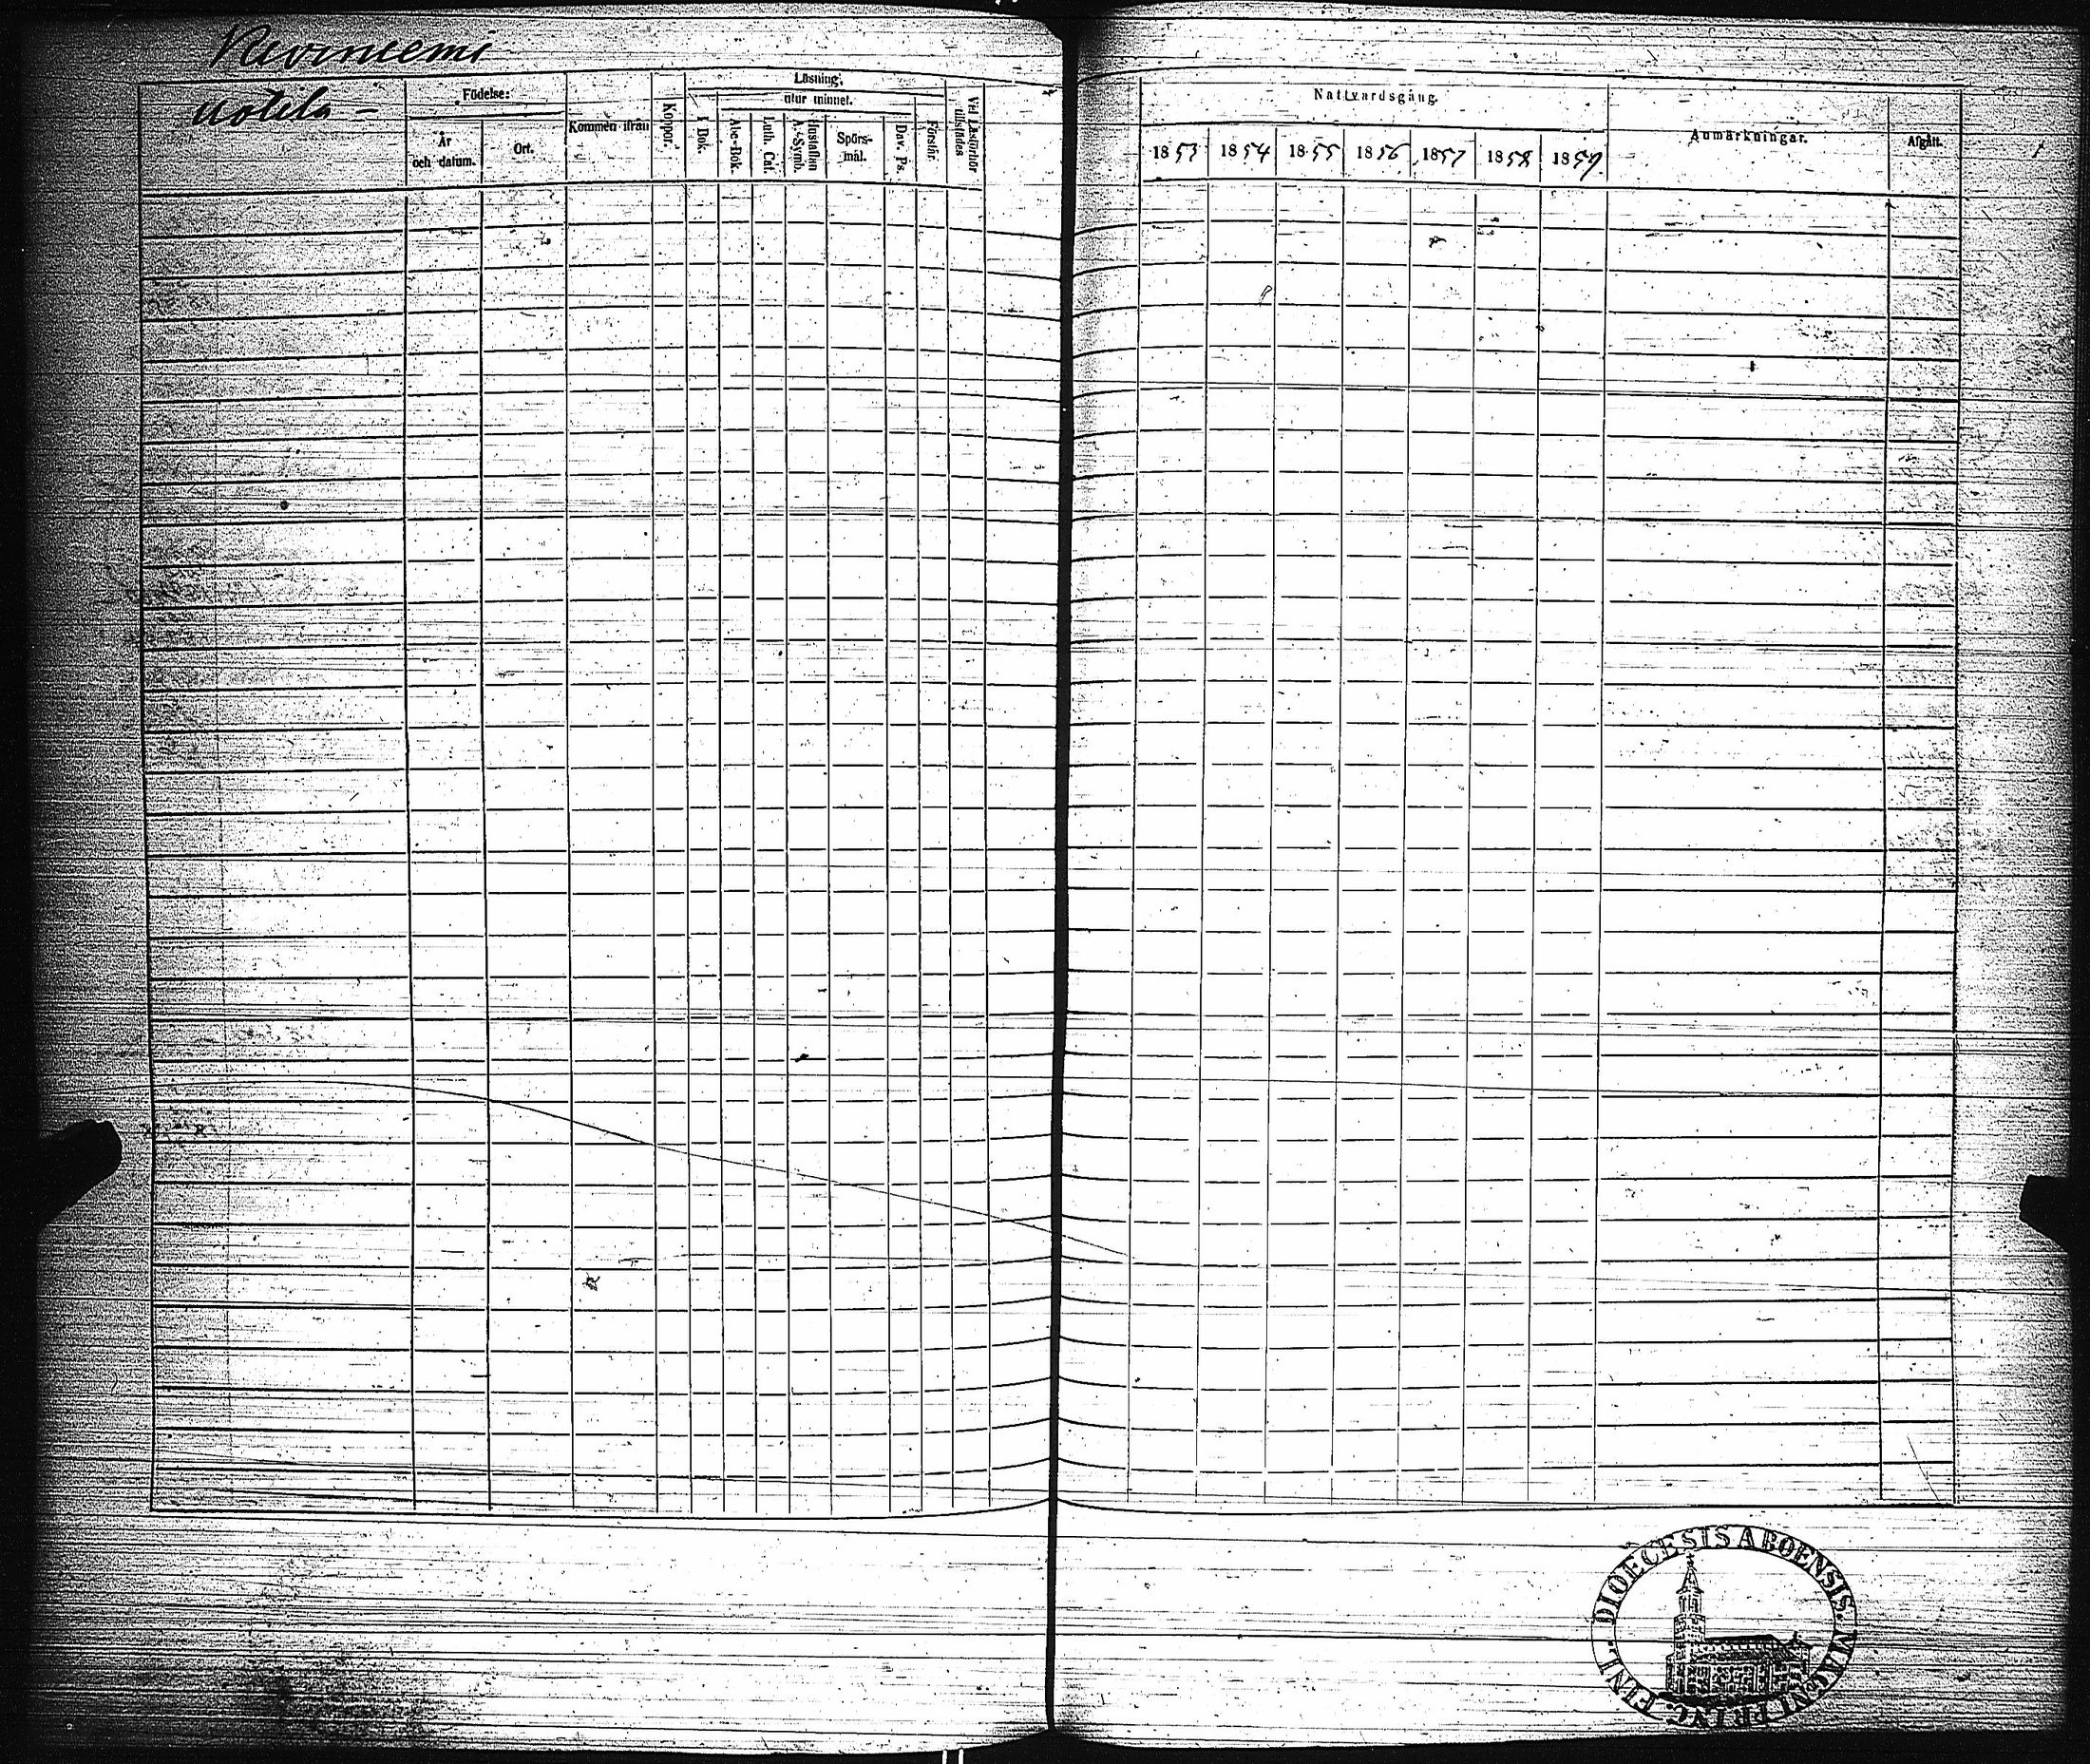 Uotila –
Födelse:
År
och datum.
Ort.
Kommen ifrån
Koppor.
Läsning,
utur minnet.
I Bok.
Abc-Bok.
Luth. Cat.
Hustaflan
A. Symb.
Spörs-
mål.
Dav. Ps.
Förstår.
Vid Läsförhör
tillstädes
Nattvardsgång.
1853
1854
1855
1856
1857
1858
1859
Anmärkningar.
Afgått.
DIOECESIS ABOENSIS. MAGNI PRINC. FINL.